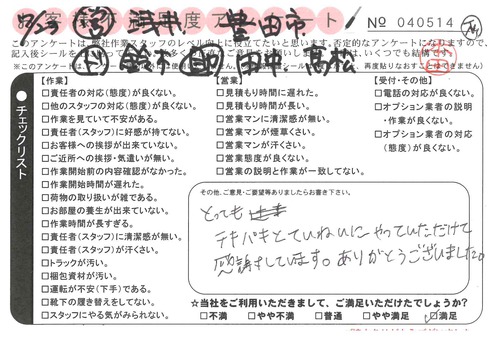 お客様満足度アンケート
8/23 営 浅井 豊田市
№ 040514
このアンケートは、弊社作業スタッフのレベル向上に役立てたいと思います。否定的なアンケートになりますので、
鈴木 田中 高松
【作業】
□責任者の対応(態度)が良くない。
□他のスタッフの対応(態度)が良くない。
□作業を見ていて不安がある。
□責任者(スタッフ)に好感が持てない。
□お客様への挨拶が出来ていない。
□ご近所への挨拶・気遣いが無い。
□作業開始前の内容確認がなかった。
□作業開始時間が遅れた。
□荷物の取り扱いが雑である。
□お部屋の養生が出来ていない。
□作業時間が長すぎる。
□責任者(スタッフ)に清潔感が無い。
□責任者(スタッフ)が汗くさい。
□トラックが汚い。
□梱包資材が汚い。
□運転が不安(下手)である。
□靴下の履き替えをしてない。
□スタッフにやる気がみられない。
【営業】
□見積もり時間に遅れた。
□見積もり時間が長い。
□営業マンに清潔感が無い。
□営業マンが煙草くさい。
□営業マンが汗くさい。
□営業態度が良くない。
□営業の説明と作業が一致してない。
【受付・その他】
□電話の対応が良くない。
□オプション業者の説明
・作業が良くない。
□オプション業者の対応
(態度)が良くない。
チェックリスト
その他、ご意見・ご要望等ありましたらお書き下さい。
とっても
テキパキとていねいにやっていただけて
感謝しています。ありがとうございました。
☆当社をご利用いただきまして、ご満足いただけたでしょうか?
□不満 □やや不満 □普通 □やや満足 ☑満足